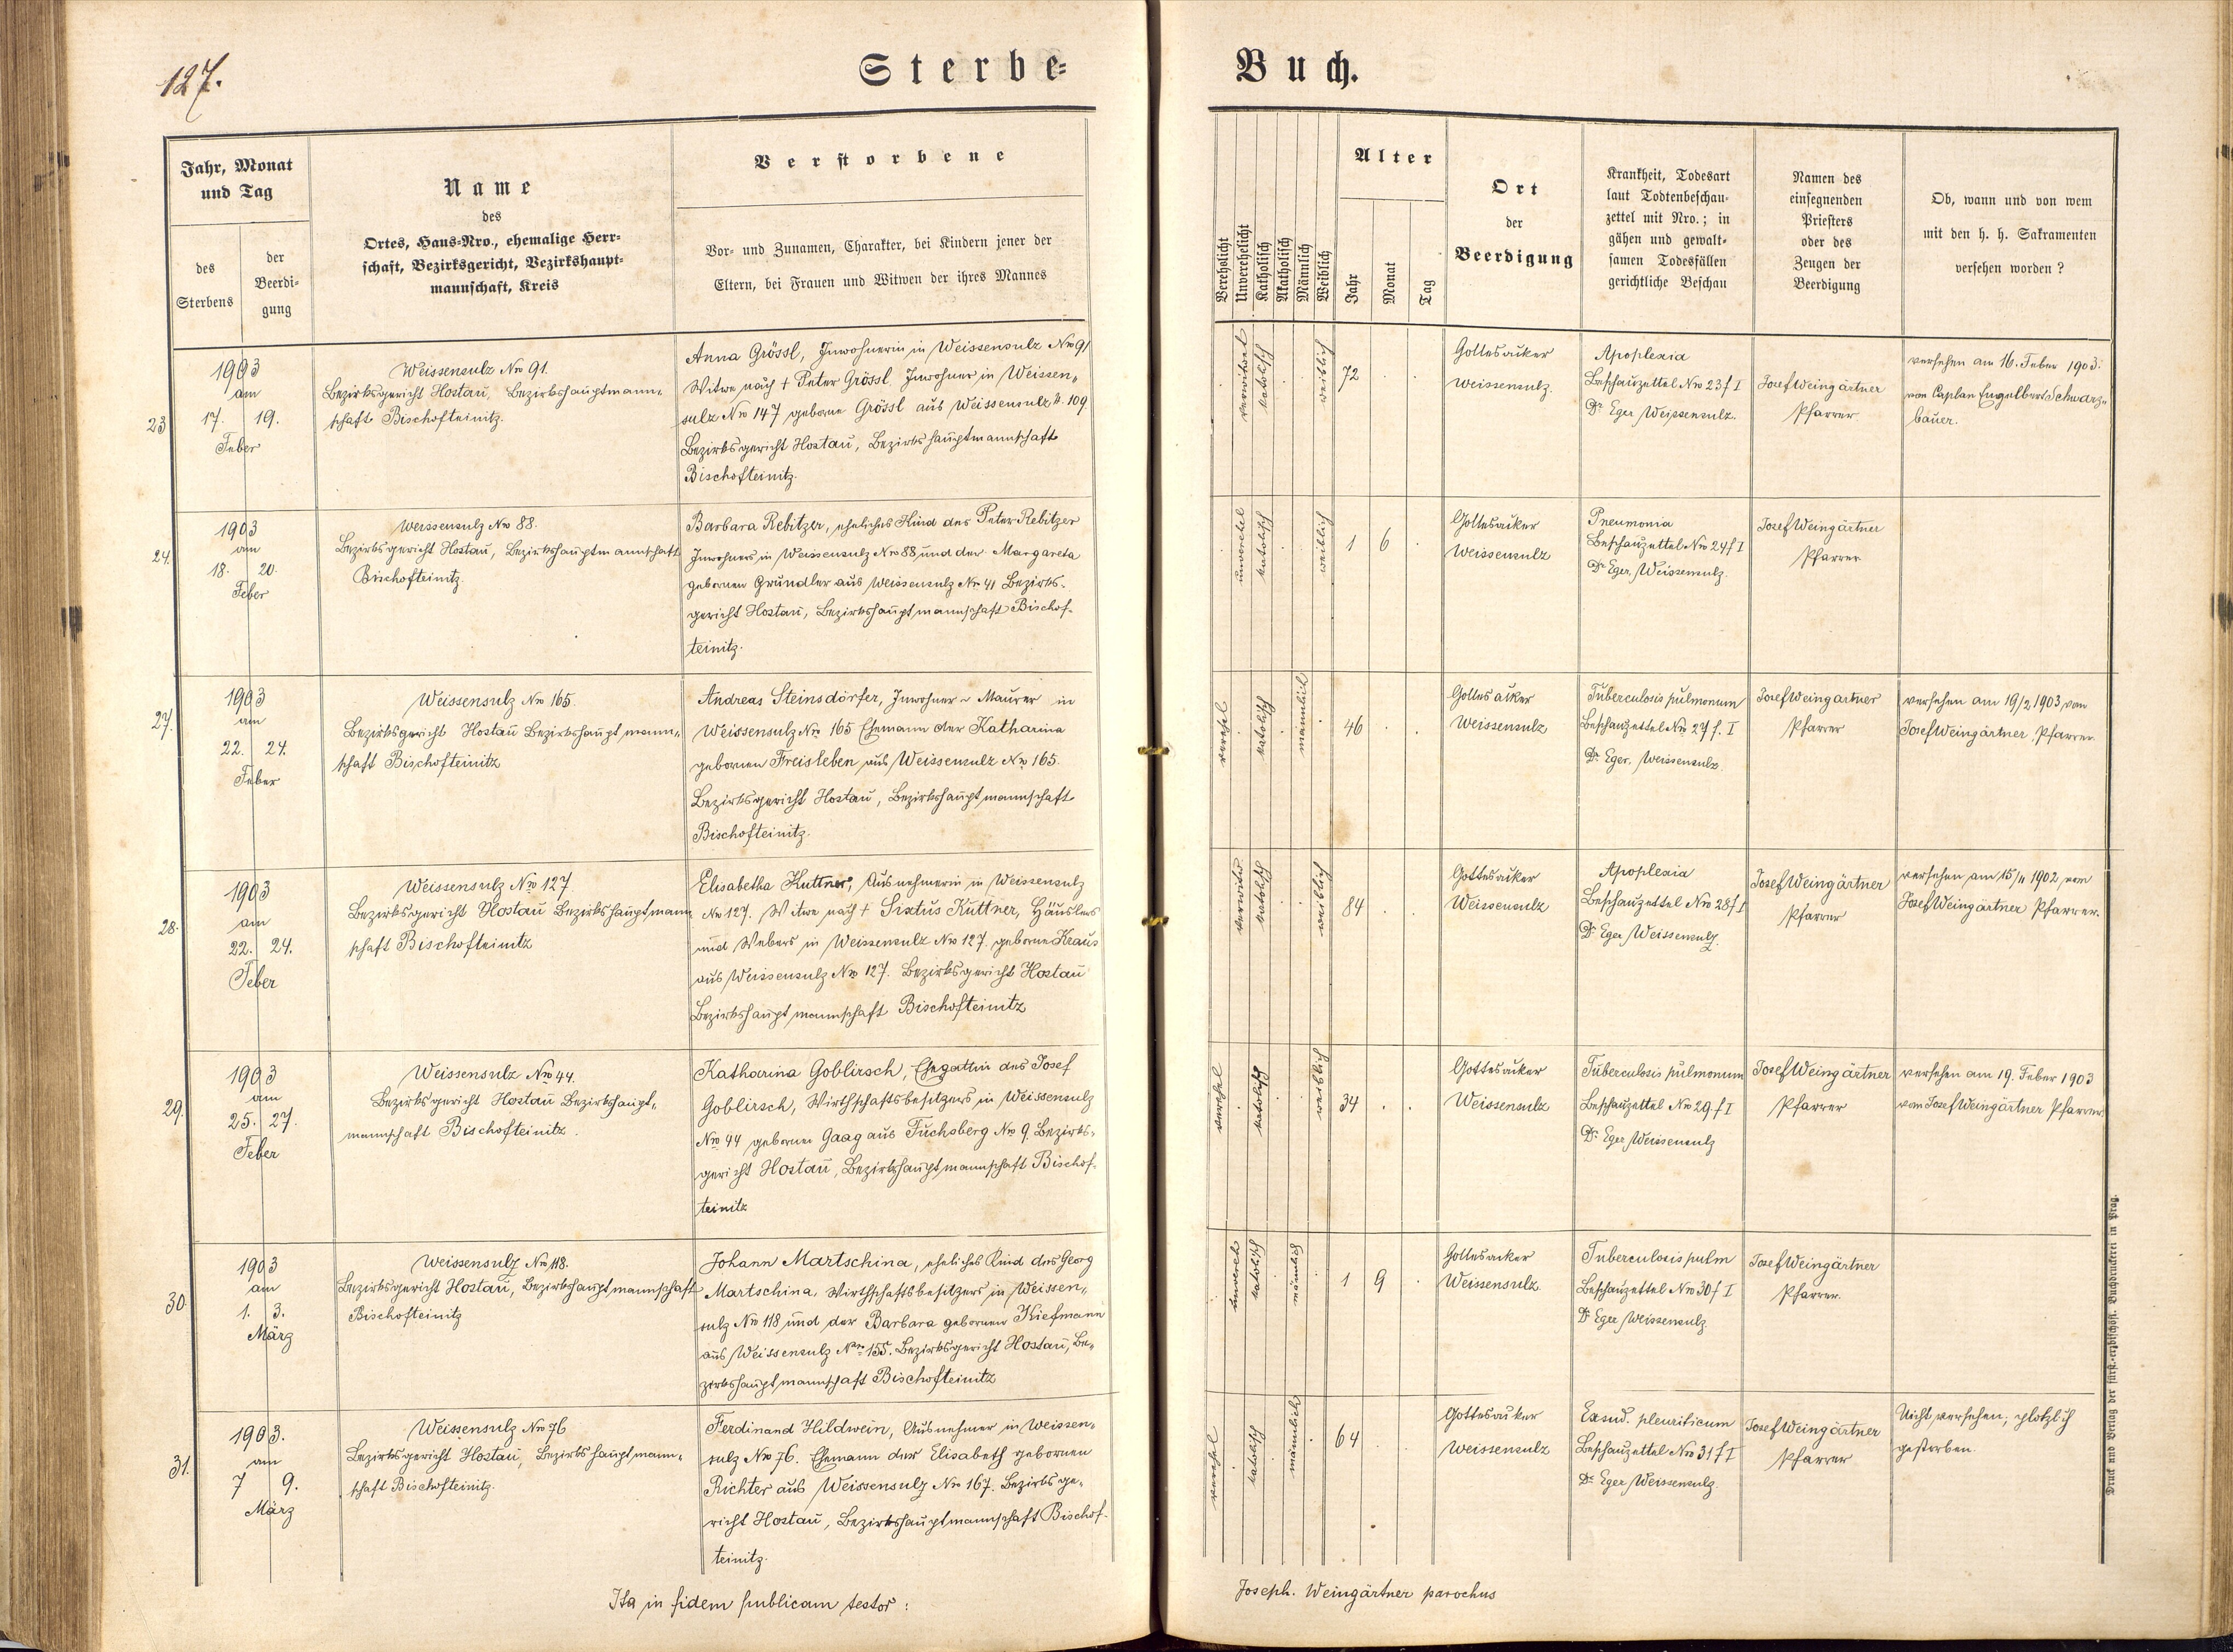 127.
Sterbe-
Buch.
Jahr, Monat
und Tag
des
Sterbens
der
Beerdi-
gung
Name
des
Ortes, Haus-Nro., ehemalige Herr-
schaft, Bezirksgericht, Bezirkshaupt-
mannschaft, Kreis
Verstorbene
Vor- und Zunamen, Charakter, bei Kindern jener der
Eltern, bei Frauen und Witwen der ihres Mannes
Verehelicht
Unverehelicht
Katholisch
Akatholisch
Männlich
Weiblich
Alter
Jahr
Monat
Tag
Ort
der
Beerdigung
Krankheit, Todesart
laut Todtenbeschau-
zettel mit Nro.; in
gähen und gewalt-
samen Todesfällen
gerichtliche Beschau
Namen des
einsegnenden
Priesters
oder des
Zeugen der
Beerdigung
Ob, wann und von wem
mit den h. h. Sakramenten
versehen worden?
23
1903
am
17. 19.
Feber
Weissensulz Nro 91.
Bezirksgericht Hostau, Bezirkshauptmann-
schaft Bischofteinitz.
Anna Grössl, Inwohnerin in Weissensulz Nro 91
Witwe nach + Peter Grössl Inwohner in Weissen-
sulz Nro 147 geborne Grössl aus Weissensulz N. 109.
Bezirksgericht Hostau, Bezirkshauptmannschaft
Bischofteinitz.
verwitwet
katolisch
weiblich
72
Gottesacker
Weissensulz.
Apoplexia
Beschauzettel Nro 23 f I
Dr Eger Weissensulz.
Josef Weingärtner
Pfarrer
versehen am 16. Feber 1903.
von Caplan Engelbert Schwarz-
bauer.
24.
1903
am
18. 20.
Feber
Weissensulz Nro 88.
Bezirksgericht Hostau, Bezirkshauptmannschaft
Bischofteinitz.
Barbara Rebitzer, eheliches Kind des Peter Rebitzer
Inwohners in Weissensulz Nro 88 und der Margareta
gebornen Gründler aus Weissensulz Nr. 41 Bezirks-
gericht Hostau, Bezirkshauptmannschaft Bischof-
teinitz.
unverehel
katolisch
weiblich
1 6
Gottesacker
Weissensulz
Pneumonia
Beschauzettel Nro 24 f I
Dr Eger, Weissensulz.
Josef Weingärtner
Pfarrer
27.
1903
am
22. 24.
Feber
Weissensulz Nro 165.
Bezirksgericht Hostau Bezirkshauptmann-
schaft Bischofteinitz
Andreas Steinsdörfer, Inwohner u Maurer in
Weissensulz Nro 165 Ehemann der Katharina
gebornen Freisleben aus Weissensulz Nro 165.
Bezirksgericht Hostau, Bezirkshauptmannschaft
Bischofteinitz.
verehel
katolisch
männlich
46
Gottesacker
Weissensulz
Tuberculosis pulmonum
Beschauzettel Nro 27 f. I
Dr Eger. Weissensulz
Josef Weingärtner
Pfarrer
versehen am 19/2 1903 vom
Josef Weingärtner, Pfarrer.
28.
1903
am
22. 24.
Feber
Weissensulz Nro 127.
Bezirksgericht Hostau Bezirkshauptmann
schaft Bischofteinitz
Elisabetha Kuttner, Ausnehmerin in Weissensulz
Nro 127. Witwe nach + Sixtus Kuttner, Häuslers
und Webers in Weissensulz Nro 127. geborne Kraus
aus Weissensulz Nro 127. Bezirksgericht Hostau
Bezirkshauptmannschaft Bischofteinitz
verwitw
katolisch
weiblich
84
Gottesacker
Weissensulz
Apoplexia
Beschauzettel Nro 28 f I
Dr Eger Weissensulz.
Josef Weingärtner
Pfarrer
versehen am 15/11 1902 vom
Josef Weingärtner Pfarrer.
29.
1903
am
25. 27.
Feber
Weissensulz Nro 44.
Bezirksgericht Hostau Bezirkshaupt-
mannschaft Bischofteinitz.
Katharina Goblirsch, Ehegattin des Josef
Goblirsch, Wirthschaftsbesitzers in Weissensulz
Nro 44 geborne Gaag aus Fuchsberg Nro 9. Bezirks-
gericht Hostau, Bezirkshauptmannschaft Bischof-
teinitz
verehel
katolisch
weiblich
34
Gottesacker
Weissensulz
Tuberculosis pulmonum
Beschauzettel Nro 29 f I
Dr Eger Weissensulz
Josef Weingärtner
Pfarrer
versehen am 19. Feber 1903
vom Josef Weingärtner Pfarrer
30.
1903
am
1. 3.
März
Weissensulz Nro 118.
Bezirksgericht Hostau, Bezirkshauptmannschaft
Bischofteinitz
Johann Martschina, eheliches Kind des Georg
Martschina, Wirthschaftsbesitzers in Weissen-
sulz Nro 118 und der Barbara gebornen Kiefmann
aus Weissensulz Nro 155. Bezirksgericht Hostau, Be-
zirkshauptmannschaft Bischofteinitz
unvereh
katolisch
männlich
1 9
Gottesacker
Weissensulz.
Tuberculosis pulm
Beschauzettel Nro 30 f I
Dr Eger Weissensulz.
Josef Weingärtner
Pfarrer.
31.
1903.
am
7 9.
März
Weissensulz Nro 76
Bezirksgericht Hostau, Bezirkshauptmann-
schaft Bischofteinitz.
Ferdinand Hildwein, Ausnehmer in Weissen-
sulz Nro 76. Ehemann der Elisabeth gebornen
Richter aus Weissensulz Nro 167. Bezirksge-
richt Hostau, Bezirkshauptmannschaft Bischof-
teinitz.
verehel
katolisch
männlich
64
Gottesacker
Weissensulz
Exsud. pleuriticum
Beschauzettel Nro 31 f I
Dr Eger Weissensulz.
Josef Weingärtner
Pfarrer
Nicht versehen; plötzlich
gestorben.
Ita in fidem publicam testor:
Joseph. Weingärtner parochus
Druck und Verlag der fürst.-erzbischöfl. Buchdruckerei in Prag.